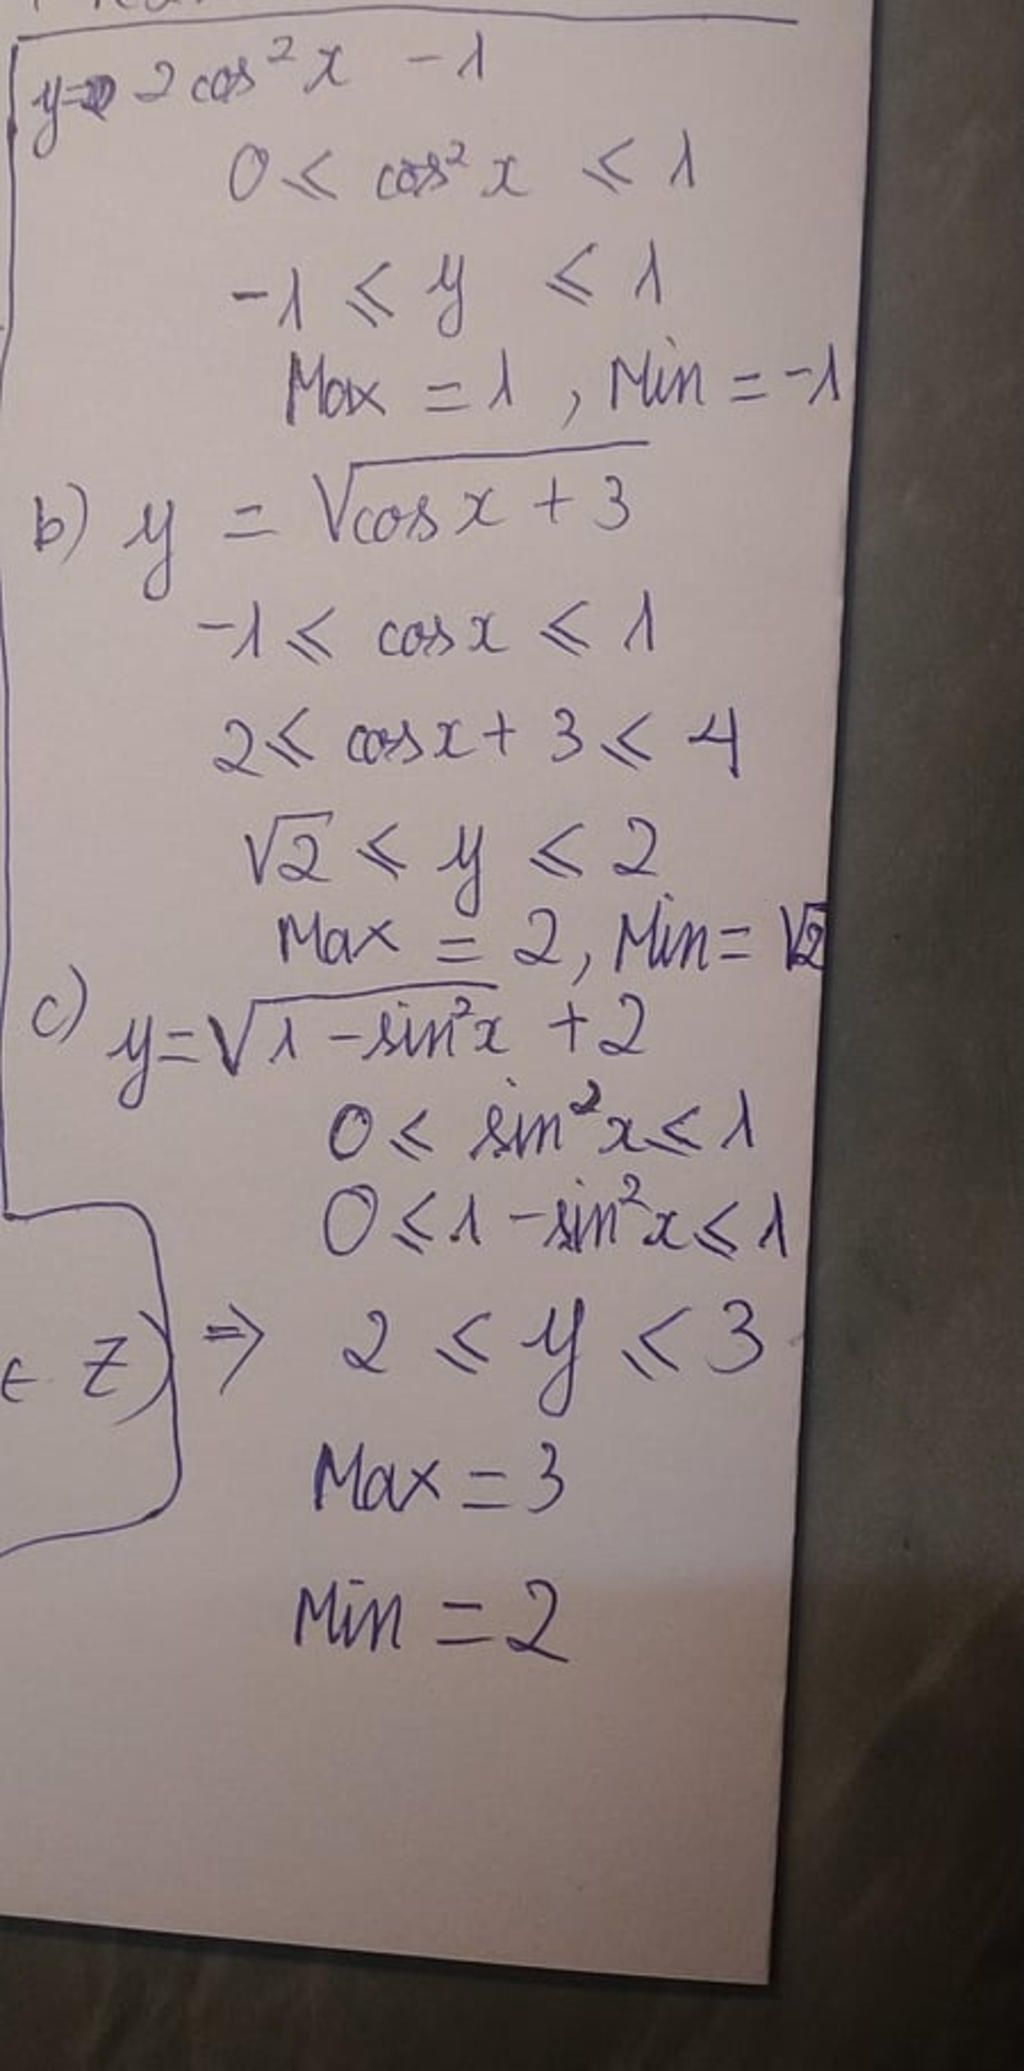 y = 2 cos² x - 1
0 ≤ cos² x ≤ 1
-1 ≤ y ≤ 1
Max = 1 , Min = -1
b) y = √(cos x + 3)
-1 ≤ cos x ≤ 1
2 ≤ cos x + 3 ≤ 4
√2 ≤ y ≤ 2
Max = 2, Min = √2
c) y = √(1 - sin²x) + 2
0 ≤ sin²x ≤ 1
0 ≤ 1 - sin²x ≤ 1
∈ Z) ⇒ 2 ≤ y ≤ 3
Max = 3
Min = 2